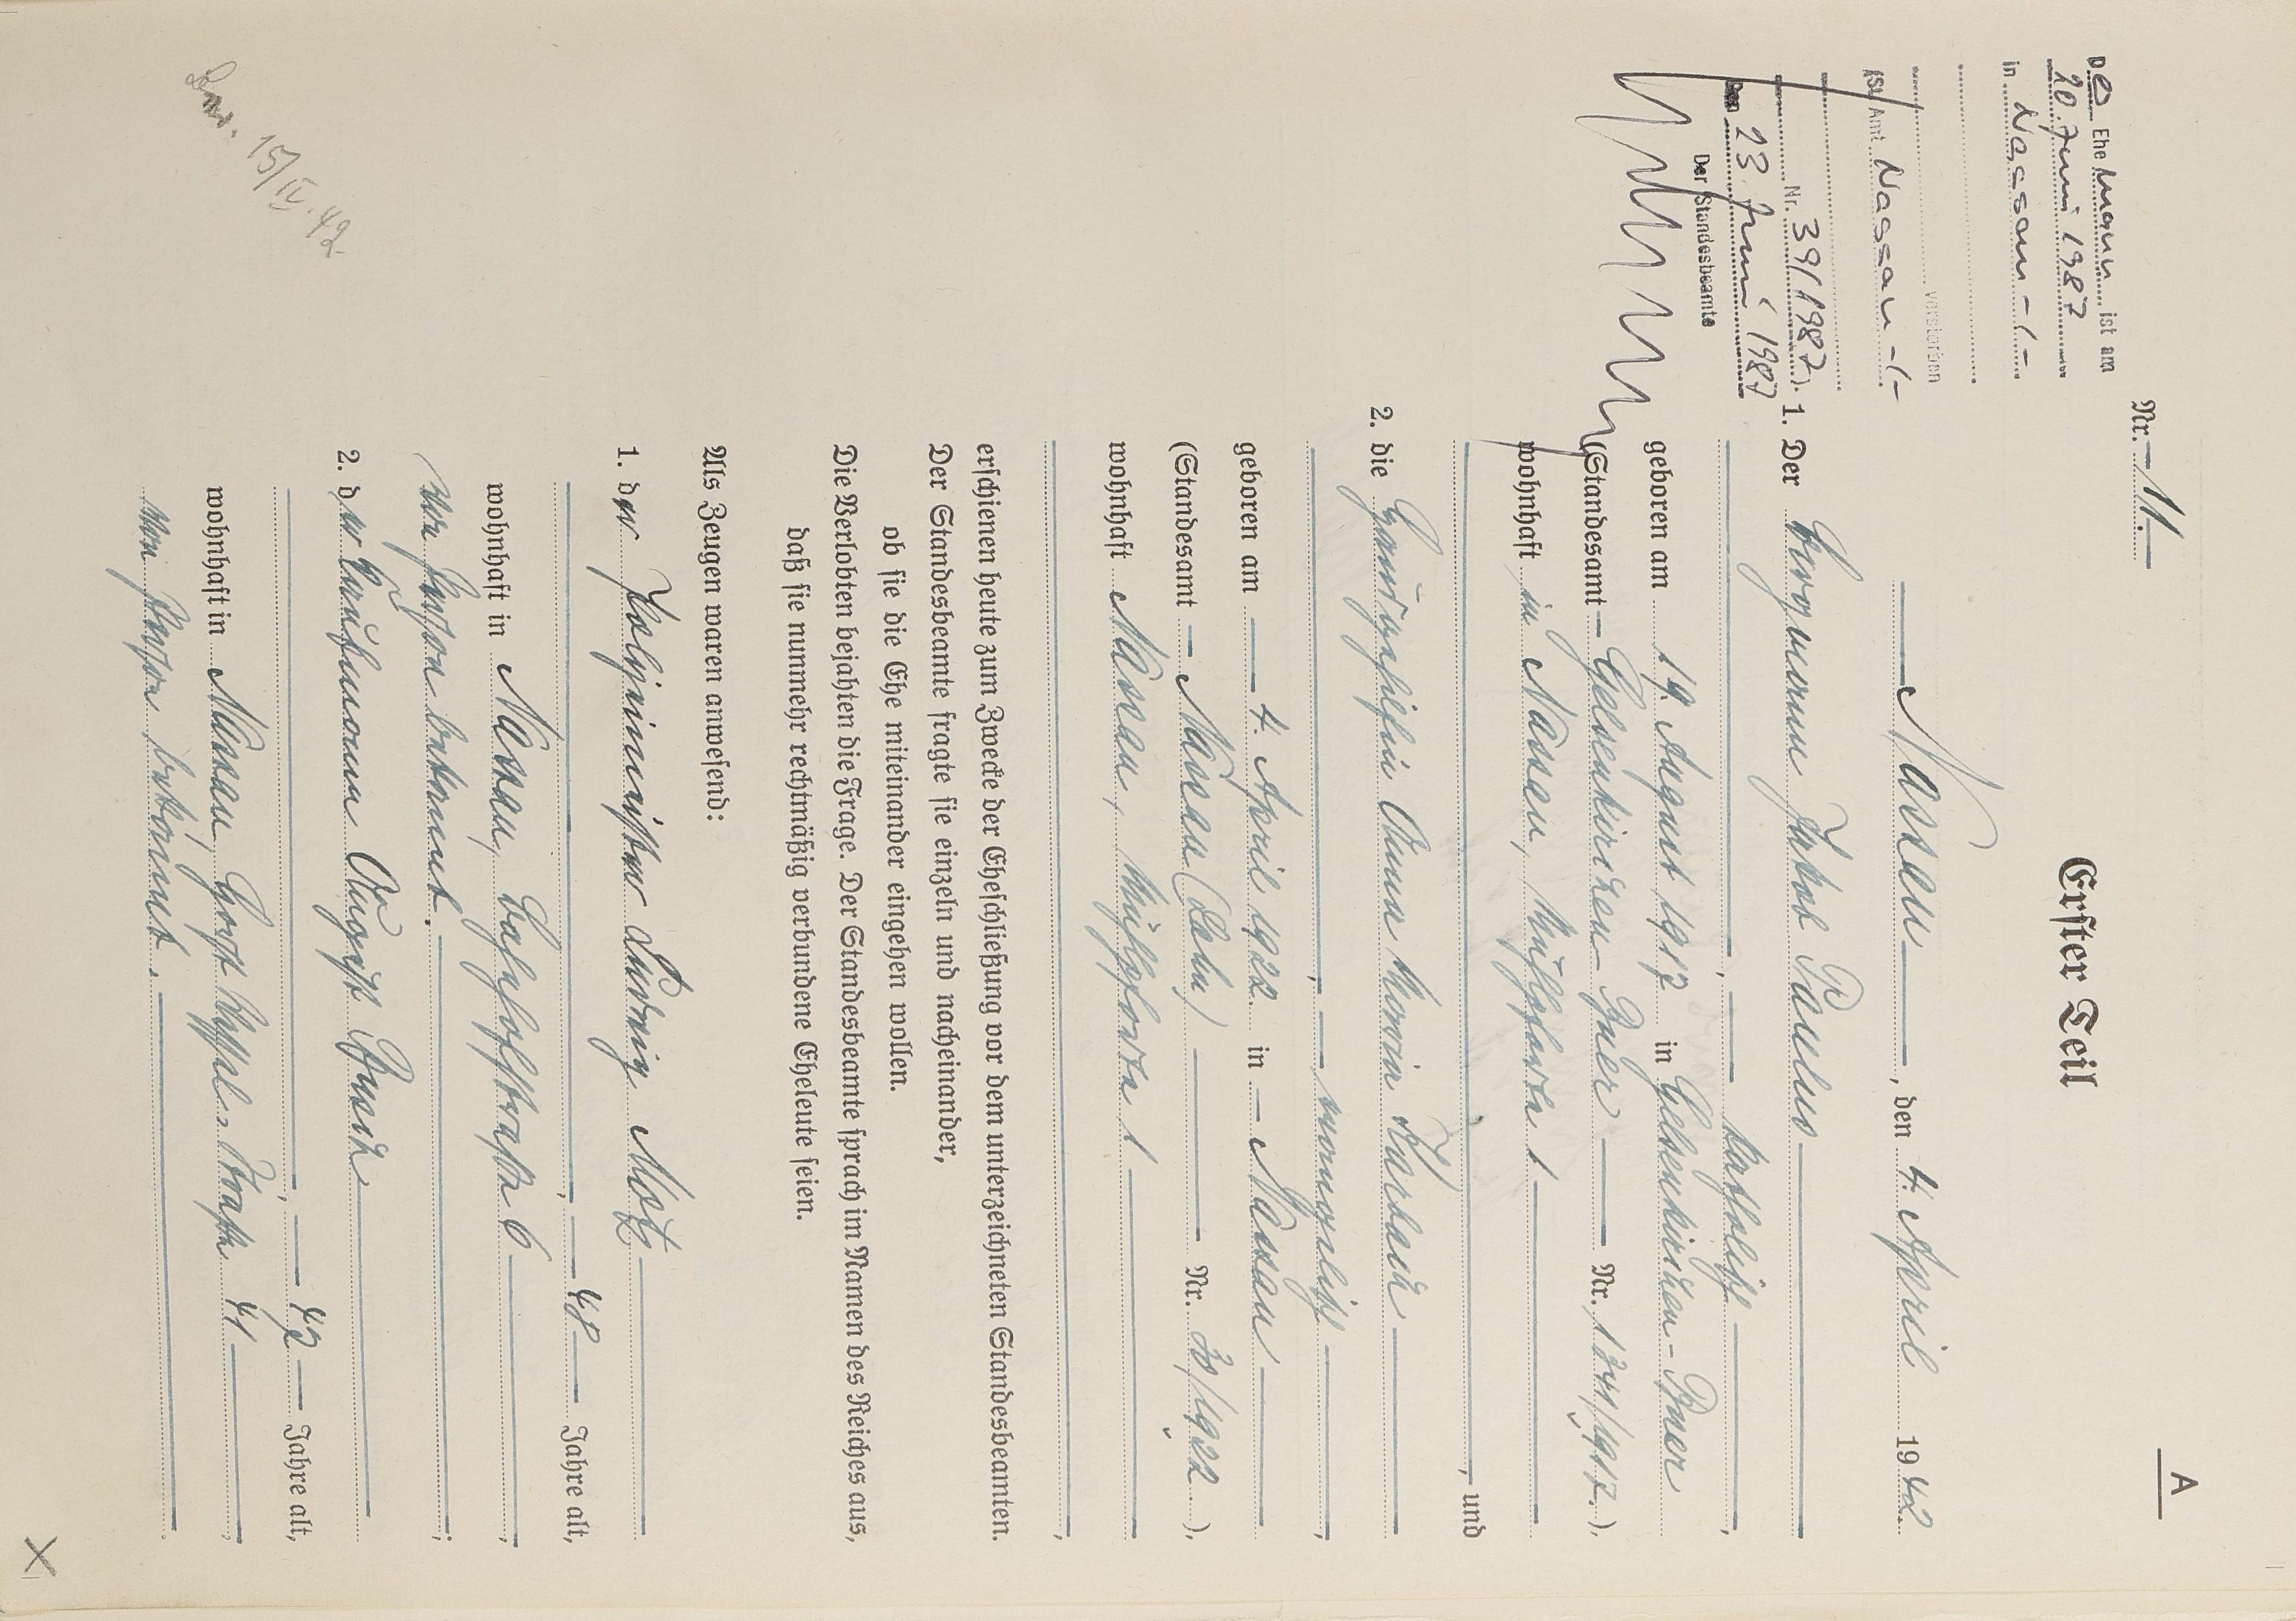 A
Nr. 11.
Erster Teil
Nassau, den 4. April 1942
1. Der Bergmann Jakob Paulus
, katholisch,
geboren am 19. August 1917 in Gelsenkirchen-Buer
(Standesamt Gelsenkirchen-Buer Nr. 1341/1917.),
wohnhaft in Nassau, Mühlpforte 1
, und
2. die Hausgehilfin Anna Maria
, evangelisch,
geboren am 4. April 1922 in Nassau
(Standesamt Nassau (Lahn) Nr. 30/1922),
wohnhaft Nassau, Mühlpforte 1
,
erschienen heute zum Zwecke der Eheschließung vor dem unterzeichneten Standesbeamten.
Der Standesbeamte fragte sie einzeln und nacheinander,
ob sie die Ehe miteinander eingehen wollen.
Die Verlobten bejahten die Frage. Der Standesbeamte sprach im Namen des Reiches aus,
daß sie nunmehr rechtmäßig verbundene Eheleute seien.
Als Zeugen waren anwesend:
1. der Polizeimeister Ludwig Motz
, 48 Jahre alt,
wohnhaft in Nassau, Bahnhofstraße 6,
von Person bekannt.;
2. der Kaufmann August Busch
, 47 Jahre alt,
wohnhaft in Nassau, Horst Wessel-Straße 41,
von Person bekannt.
Des Ehemann ist am
20. Juni 1987
in Nassau -/-
verstorben
(St. Amt Nassau -/-
Nr. 39/1987).
Den 23. Juni 1987
Der Standesbeamte
15/IV.42
X